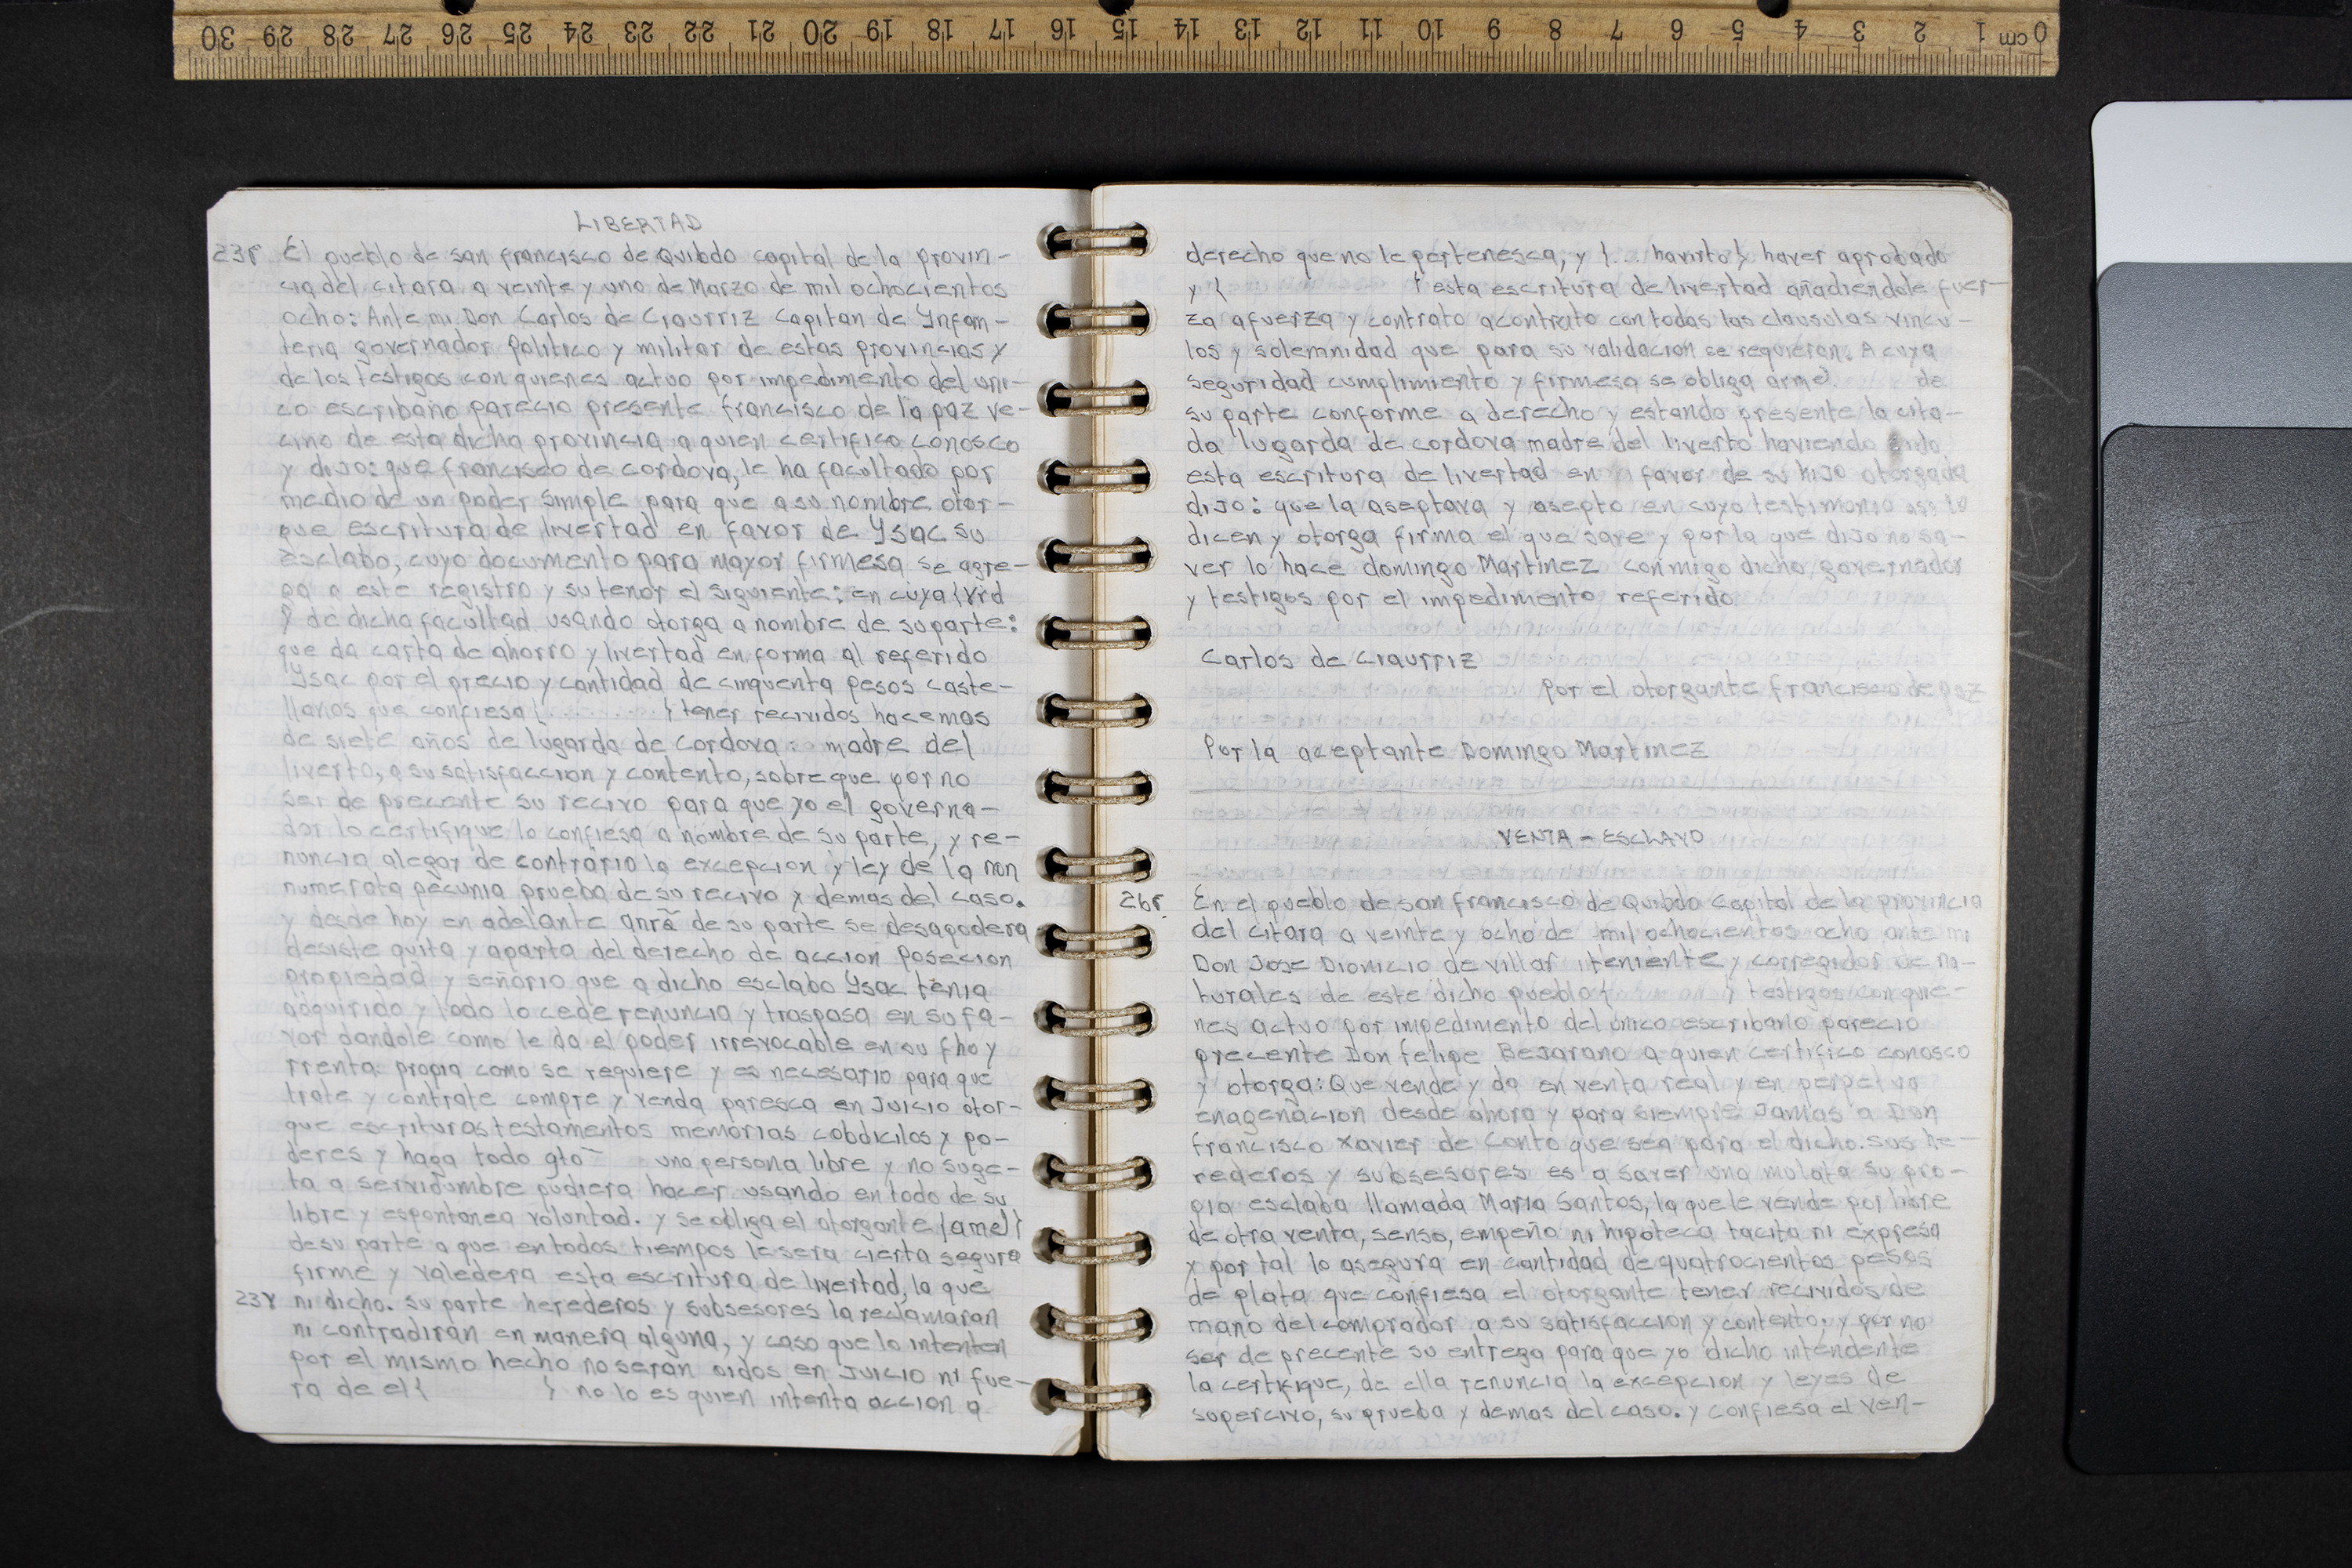 30 29 28 27 26 25 24 23 22 21 20 19 18 17 16 15 14 13 12 11 10 9 8 7 6 5 4 3 2 1 cm 0
LIBERTAD
23r El pueblo de san francisco de Quibdo capital de la provin-
cia del citara a veinte y uno de Marzo de mil ochocientos
ocho: Ante mi Don Carlos de Ciaurriz Capitan de Ynfan-
teria governador politico y militar de estas provincias y
de los testigos con quienes actuo por impedimento del uni-
co escribano parecio presente francisco de la paz ve-
cino de esta dicha provincia a quien certifico conosco
y dijo: que francisco de cordova, le ha facultado por
medio de un poder simple para que a su nombre otor-
gue escritura de livertad en favor de Ysac su
esclabo, cuyo documento para mayor firmesa se agre-
ga a este registro y su tenor el siguiente: en cuya {vrd
} de dicha facultad usando otorga a nombre de su parte:
que da carta de ahorro y livertad en forma al referido
Ysac por el precio y cantidad de cinquenta pesos caste-
llanos que confiesa {..........} tener recividos hacemas
de siete años de lugarda de Cordova: madre del
liverto, a su satisfaccion y contento, sobre que por no
ser de precente su recivo para que yo el governa-
dor lo certifique lo confiesa a nombre de su parte, y re-
nuncia alegar de contrario la excepcion y ley de la non
numerata pecunia prueba de su recivo y demas del caso.
y desde hoy en adelante anrã de su parte se desapodera
desiste quita y aparta del derecho de accion posecion
propiedad y señorio que a dicho esclabo Ysac tenia
adquirido y todo lo cede renuncia y traspasa en su fa-
vor dandole como le da el poder irrevocable en su fho y
rrenta propia como se requiere y es necesario para que
trate y contrate compre y venda paresca en Juicio otor-
gue escrituras testamentos memorias cobdicilos y po-
deres y haga todo qto una persona libre y no suge-
ta a servidumbre pudiera hacer usando en todo de su
libre y espontanea voluntad. y se obliga el otorgante {ame}
de su parte a que en todos tiempos le sera cierta segura
firme y valedera esta escritura de livertad, la que
23v ni dicho. su parte herederos y subsesores la reclamaran
ni contradiran en manera alguna, y caso que lo intenten
por el mismo hecho no seran oidos en Juicio ni fue-
ra de el { } no lo es quien intenta accion a
derecho que no le pertenesca, y {... havisto} haver aprobado
y { } esta escritura de livertad añadiendole fuer-
za afuerza y contrato acontrato con todas las clausulas vincu-
los y solemnidad que para su validacion se requieran. A cuya
seguridad cumplimiento y firmesa se obliga arme}. de
su parte conforme a derecho y estando presente la cita-
da lugarda de cordova madre del liverto haviendo oido
esta escritura de livertad en favor de su hijo otorgada
dijo: que la aseptava y asepto en cuyo testimonio assi lo
dicen y otorga firma el que save y por la que dijo no sa-
ver lo hace domingo Martinez conmigo dicho governador
y testigos por el impedimento referido
Carlos de Ciaurriz
Por el otorgante francisco de paz
Por la aceptante Domingo Martinez
VENTA - ESCLAVO
26r. En el pueblo de san francisco de Quibdo Capital de la provincia
del citara a veinte y ocho de mil ochocientos ocho ante mi
Don Jose Dionicio de villar teniente y corregidor de na-
turales de este dicho pueblo { } testigos con quie-
nes actuo por impedimento del unico escribano parecio
precente Don felipe Bejarano a quien certifico conosco
y otorga: Que vende y da en venta real y en perpetua
enagenacion desde ahora y para siempre Jamas a Don
francisco xavier de Conto que sea para el dicho. sus he-
rederos y subsesores es a saver una mulata su pro-
pia esclaba llamada Maria Santos, la que le vende por libre
de otra venta, senso, empeño ni hipoteca tacita ni expresa
y por tal lo asegura en cantidad de quatrocientos pesos
de plata que confiesa el otorgante tener recividos de
mano del comprador a su satisfaccion y contento; y por no
ser de precente su entrega para que yo dicho intendente
la certifique, de ella renuncia la excepcion y leyes de
supercivo, su prueba y demas del caso. y confiesa el ven-